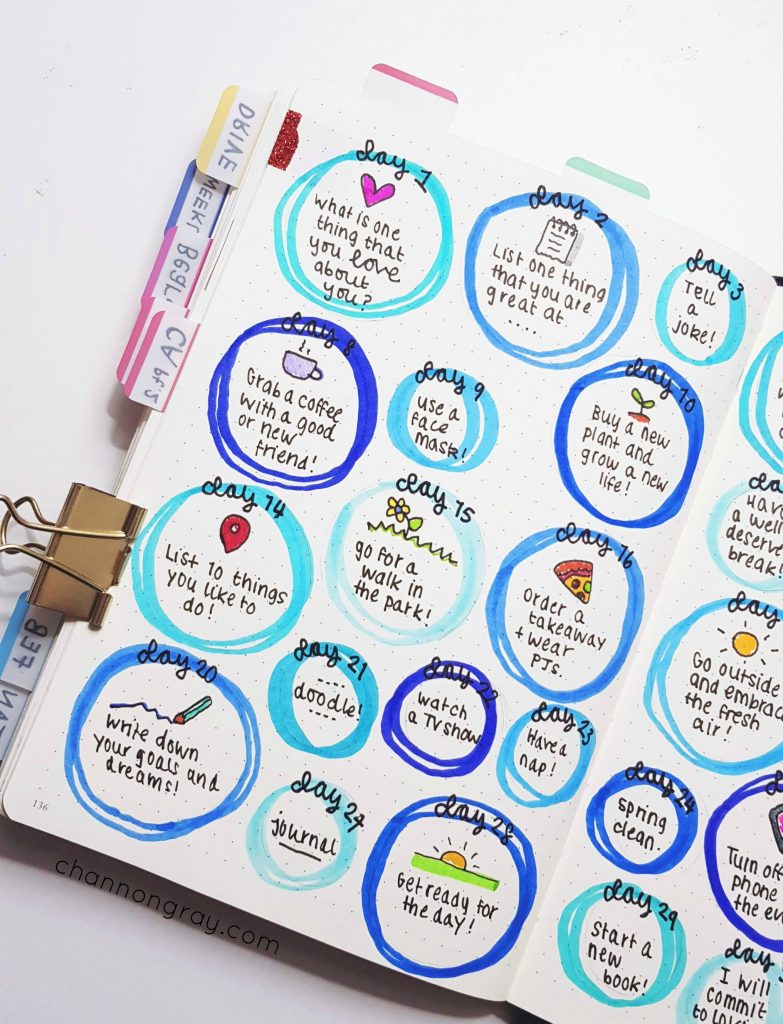 DRIVE
day 1
what is one
thing that
you love
about
you?
day 2
List one thing
that you are
great at
.....
day 3
Tell
a
joke!
day 8
Grab a coffee
with a good
or new
friend!
day 9
use a
face
mask!
day 10
Buy a new
plant and
grow a new
life!
day 14
List 10 things
you like to
do!
day 15
go for a
walk in
the park!
day 16
Order a
takeaway
+ wear
PJs.
day 20
write down
your goals and
dreams!
day 21
doodle!
day 22
watch
a TV show
day 23
Have a
nap!
day 27
journal
day 28
Get ready for
the day!
Have
a well
deserve
break!
Go outside
and embrac
the fresh
air!
day 24
spring
clean.
Turn off
phone
the ev
day 29
start a
new
book!
I will
commit
to
FEB
136
channongray.com